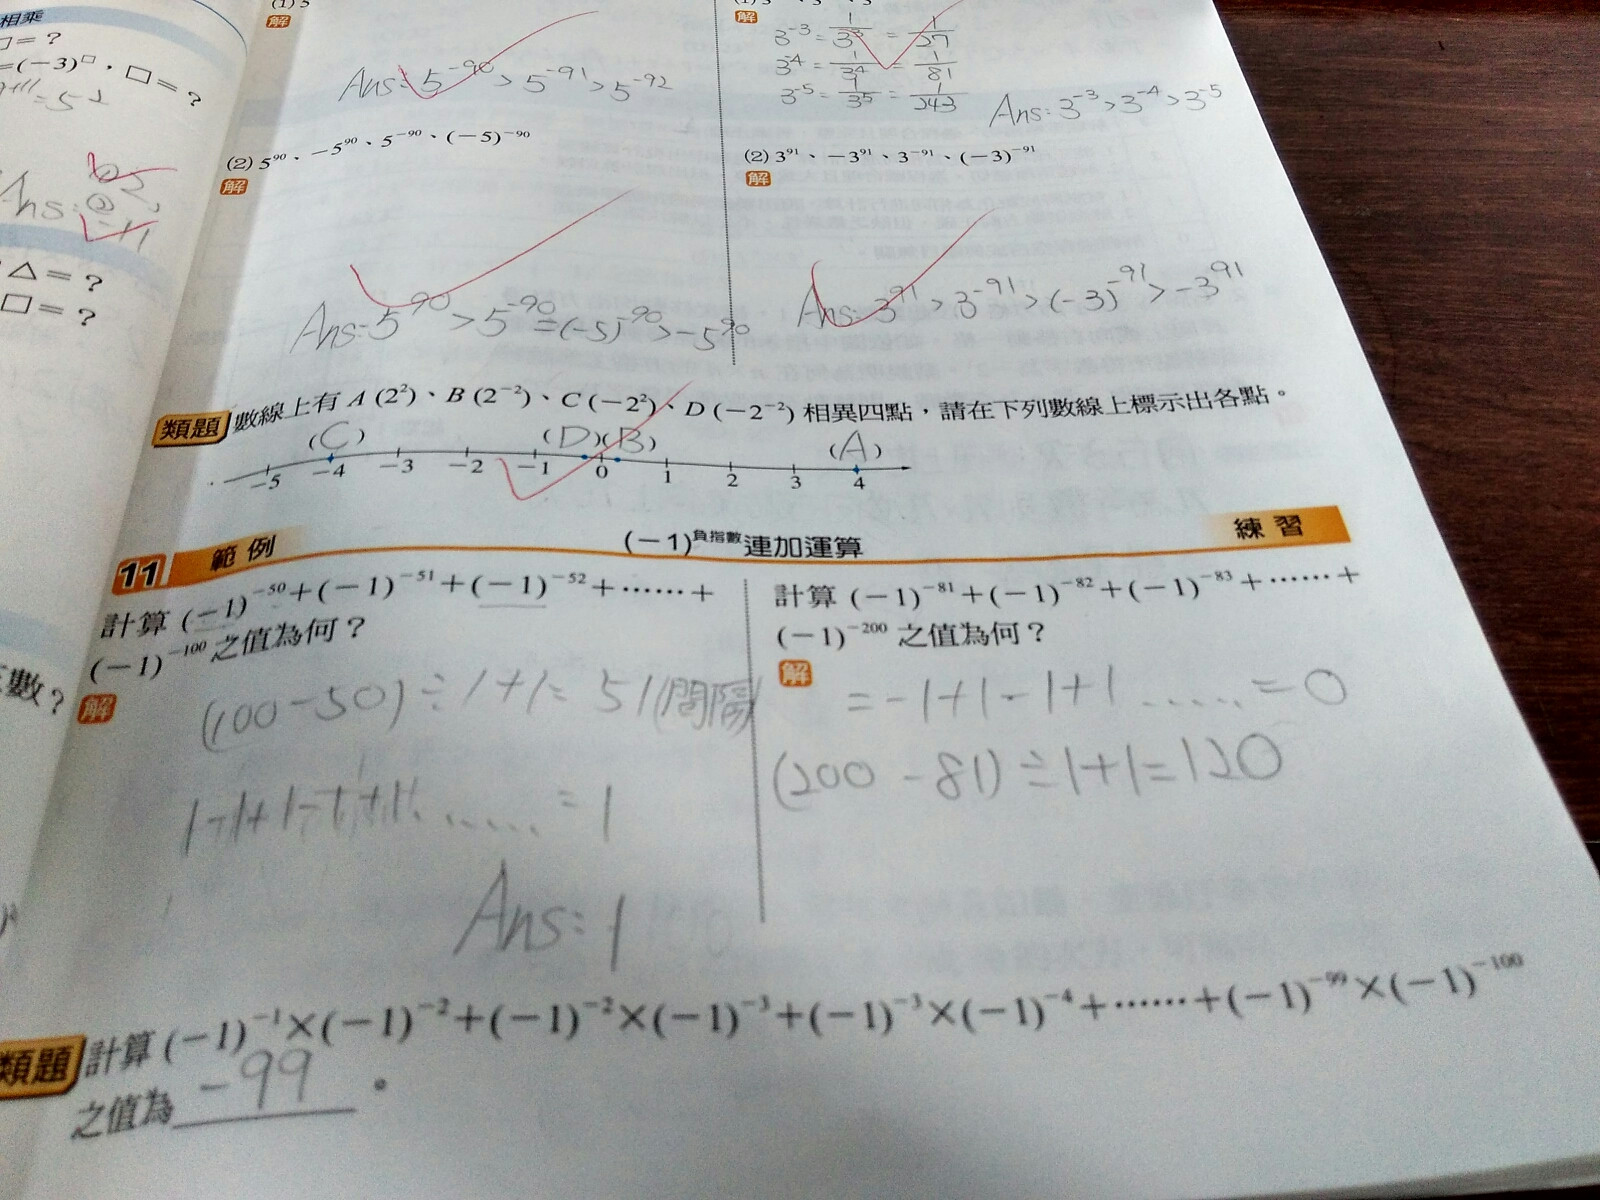 相乘
□=?
=(-3)^□,□=?
Ans:
△=?
□=?
數?
解
Ans: 5^-90 > 5^-91 > 5^-92
(2) 5^90、-5^90、5^-90、(-5)^-90
解
Ans: 5^90 > 5^-90 = (-5)^-90 > -5^90
解
3^-3 = 1/3^3 = 1/27
3^-4 = 1/3^4 = 1/81
3^-5 = 1/3^5 = 1/243
Ans: 3^-3 > 3^-4 > 3^-5
(2) 3^91、-3^91、3^-91、(-3)^-91
解
Ans: 3^91 > 3^-91 > (-3)^-91 > -3^91
類題 數線上有 A (2^2)、B (2^-2)、C (-2^2)、D (-2^-2) 相異四點,請在下列數線上標示出各點。
(C) (D)(B) (A)
-5 -4 -3 -2 -1 0 1 2 3 4
11 範例 (-1)^負指數 連加運算 練習
計算 (-1)^-50+(-1)^-51+(-1)^-52+……+
(-1)^-100 之值為何?
解
(100-50)÷1+1=51(間隔)
1-1+1-1+1......=1
Ans: 1
計算 (-1)^-81+(-1)^-82+(-1)^-83+……+
(-1)^-200 之值為何?
解
=-1+1-1+1.....=0
(200-81)÷1+1=120
類題 計算 (-1)^-1×(-1)^-2+(-1)^-2×(-1)^-3+(-1)^-3×(-1)^-4+……+(-1)^-99×(-1)^-100
之值為 -99 。